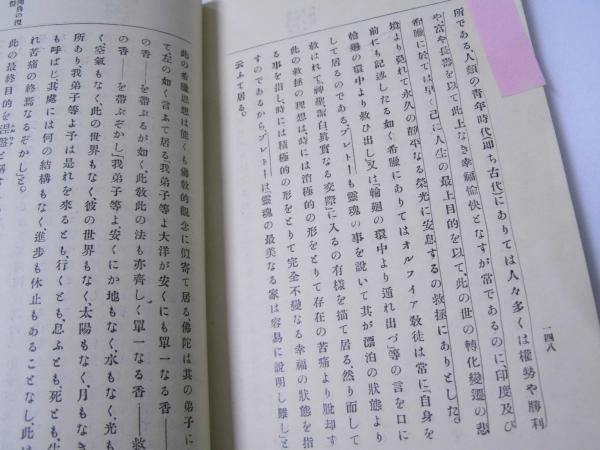 一四八
所である、人類の青年時代(即ち古代)にありては人々多くは權勢や勝利
や、富や長壽を以て此上なき幸福愉快となすが常であるのに印度及び
希臘に於ては早く已に人生の最上目的を以て、此の世の轉化變遷の悲
境より免れて永久の靜平なる榮光に安息するの救拯にありとした。
前にも記述したる如く希臘にありてはオルフィア敎徒は常に「自身を
輪廻の環中より救ひ出し」又は「輪廻の環中より遁れ出づ」等の言を口に
して居るのである、プレトーも靈魂の事を說いて其が漂泊の狀態より
救はれて「神聖潔白眞實なる交際」に入るの有樣を描て居る、然り而して
此の救拯の理想は、時には消極的の形をとりて存在の苦痛より脫却す
る事を指し、時には積極的の形をとりて完全不變なる幸福の狀態を指
すのであるから、プレトーは「靈魂の最美なる家は容易に說明し難し」と
云ふて居る。
此の希臘思想は能くも佛敎的觀念に似寄て居る、佛陀は其の弟子に
て、左の如く言ふて居る「我弟子等よ大洋が安くにも單一なる香――
の香――を帶ぶるが如く、此敎此の法も亦齊しく單一なる香――救
の香――を帶ぶぞかし」「我弟子等よ、安くにか地もなく、水もなく、光も
く、空氣もなく、此の世界もなく彼の世界もなく、太陽もなく、月もなき
所あり、我弟子等よ予は是れを來るとも、行くとも、息ふとも、死とも、生
も呼ばじ、其處には何の結構もなく、進步も休止もあることなし、此は
れ苦痛の終焉なるぞかし」と。
此の最終目的を涅槃と稱す